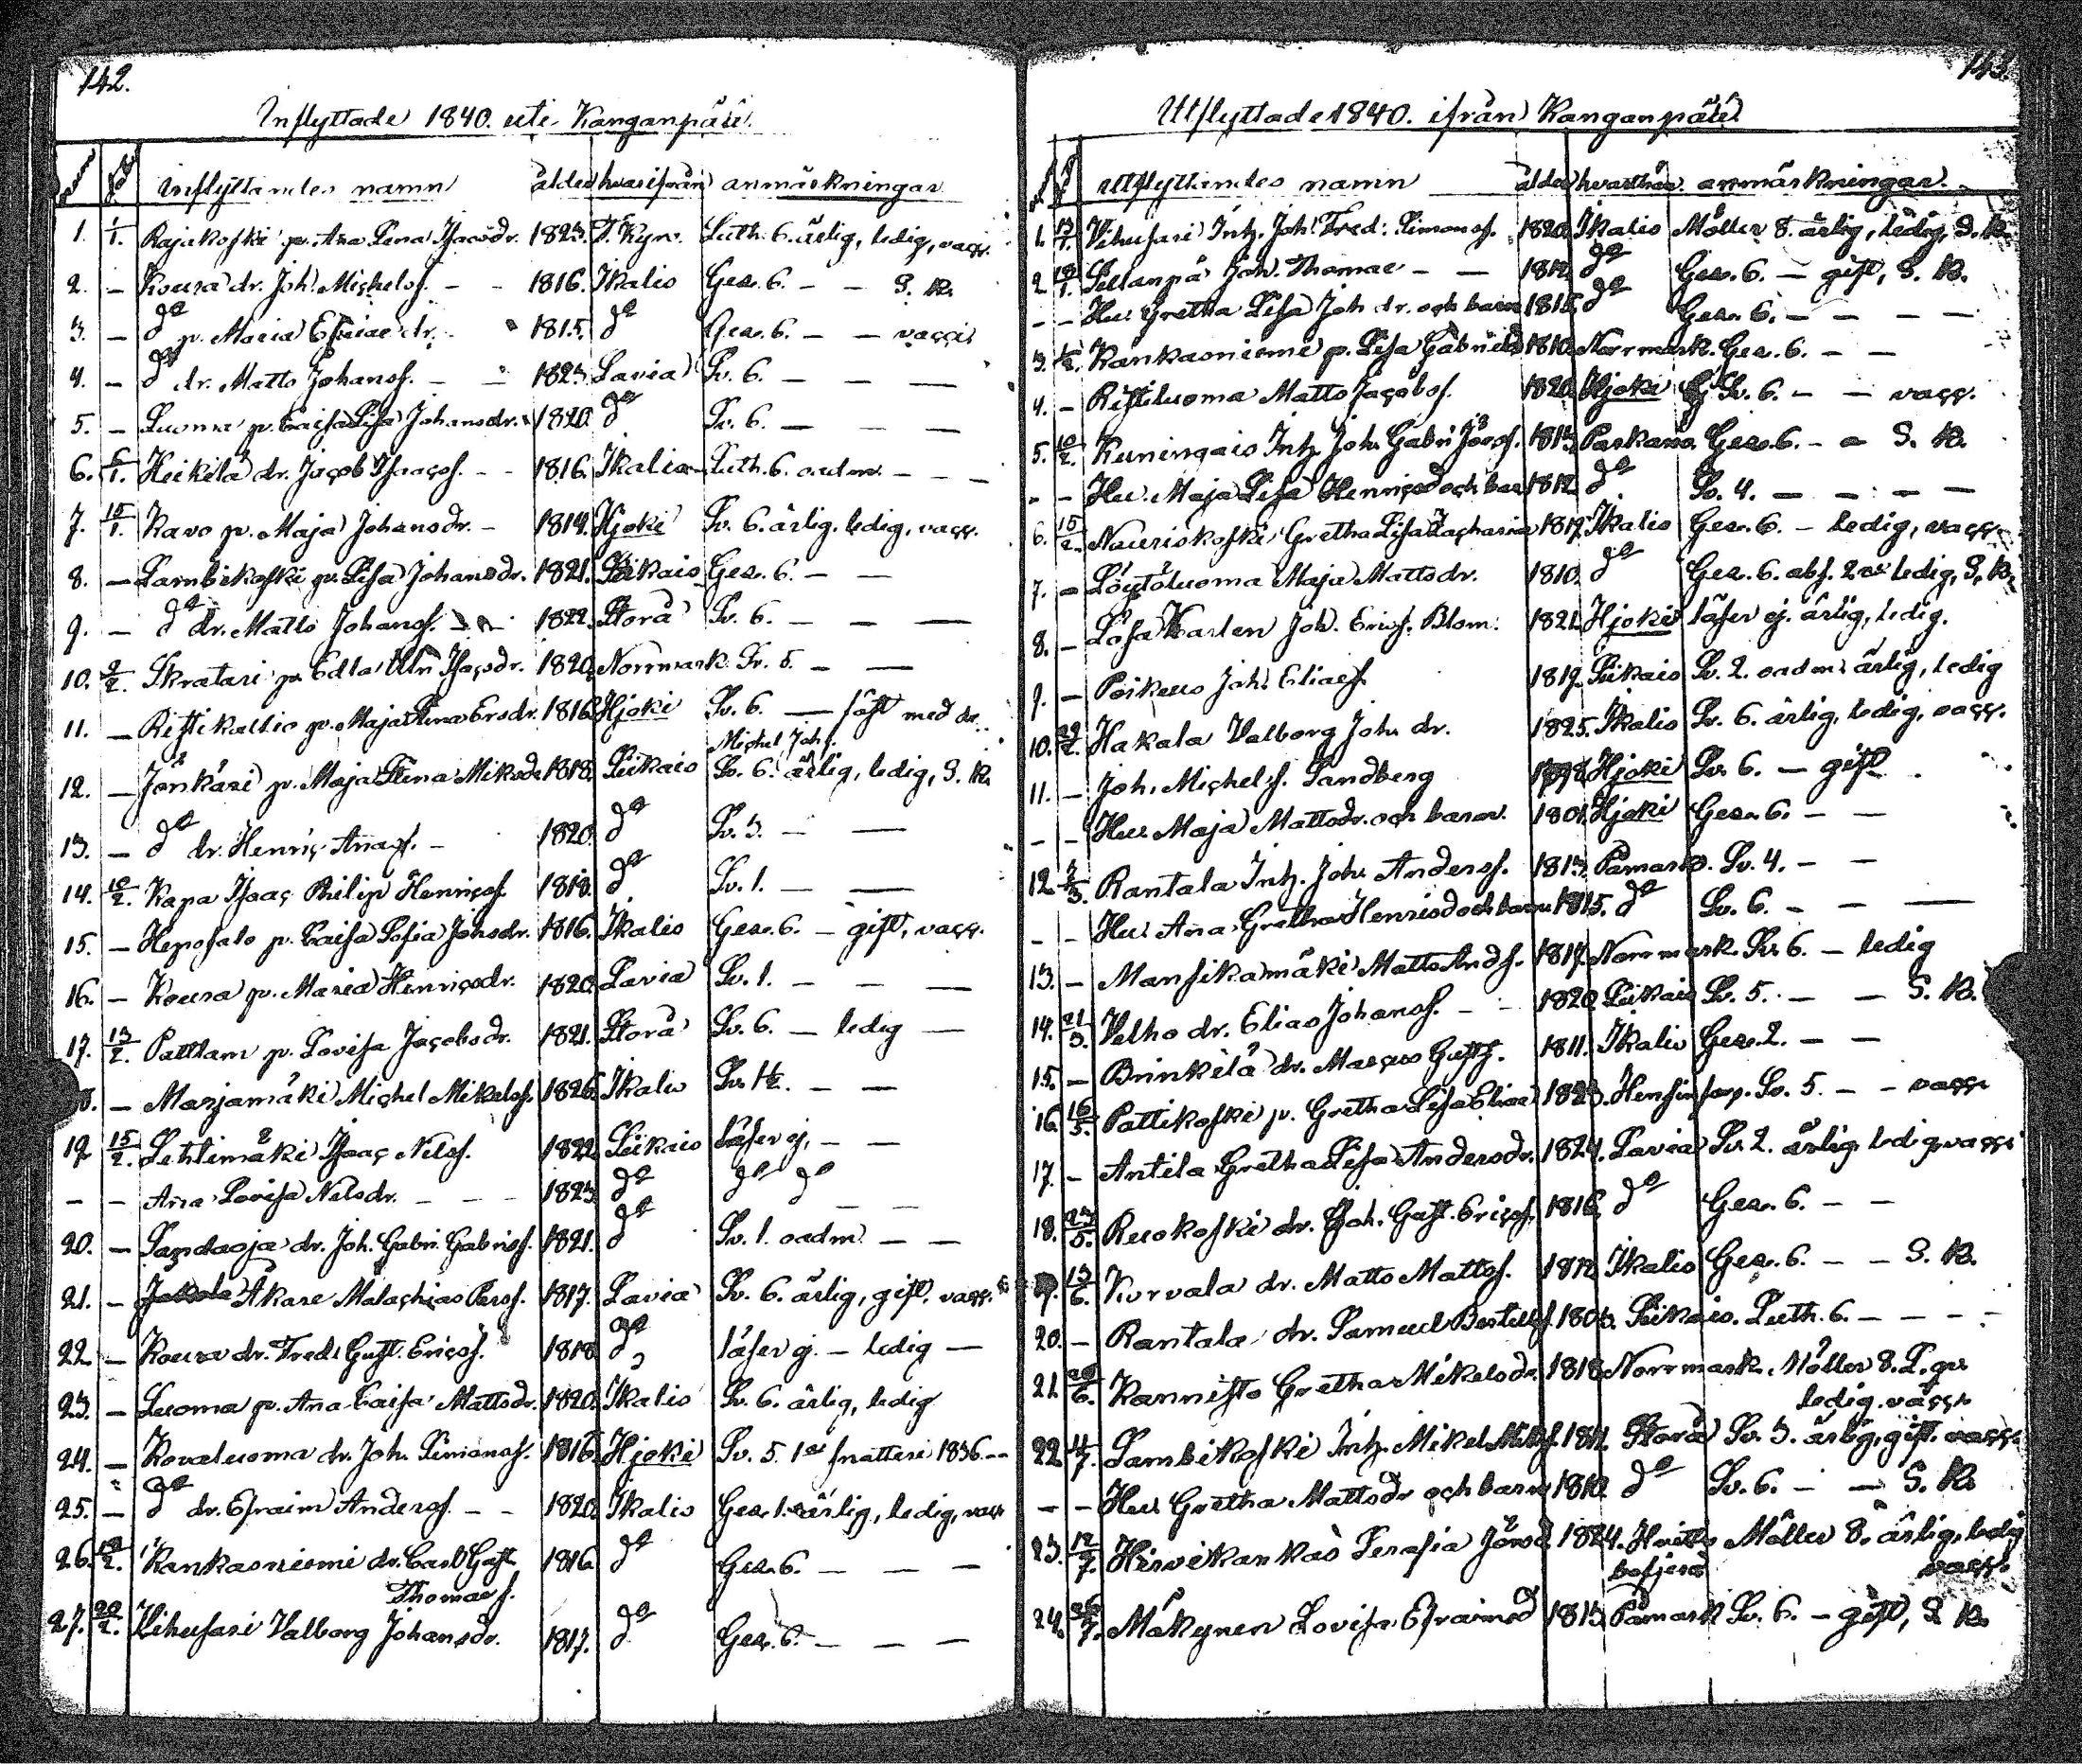 142.
Inflyttade 1840. uti Kanganpää.
inflyttandes namn ålder hvarifrån anmärkningar
1. 1/1. Rajakoski p. Ana Lena Isacsdr. 1823. T. Kyro. Luth. 6. ärlig, ledig, vacc.
2. — Koura dr. Joh. Michelss. - - 1816. Ikalis Ges. 6. - - S. K.
3. — do p. Maria Esaiae dr. - 1815. do Ges. 6. - — vacci
4. — do dr. Matts Johanss. - - 1823. Lavia Sv. 6. — — —
5. — Luoma p. Caisa Lisa Johansdr. 1820. do Sv. 6. — — —
6. 6/1. Heikilä dr. Jacob Isaacss. - - 1816. Ikalis Luth. 6. oadm. - - -
7. 15/1. Kavo p. Maja Johansdr. - 1814. Hjoki Sv. 6. ärlig. ledig, vacc.
8. — Lambikoski p. Lisa Johansdr. 1821. Siikais Ges. 6. - —
9. — do dr. Matts Johanss. 1822. Storå Sv. 6. — — —
10. 2/2. Skratari p. Edla Ulr. Isacsdr. 1820. Norrmark. Sv. 5. - —
11. — Ristikallio p. Maja Stina Ersdr. 1816. Hjoki Sv. 6. — fäst med dr.
Michel Johss.
12. — Jänkäri p. Maja Stina Miksdr 1818. Siikais Sv. 6. ärlig, ledig, S. K.
13. — do dr. Henric Anass. - 1820. do Sv. 3. - —
14. 10/2. Kapa Isaac Philip Henricss. 1818. do Sv. 1. — —
15. — Heposalo p. Caisa Sofia Johsdr. 1816. Ikalis Ges. 6. - gift, vacc.
16. — Koura p. Maria Henricsdr. 1820. Lavia Sv. 1. — — —
17. 13/2. Pattlam p. Lovisa Jacobsdr. 1821. Storå Sv. 6. — ledig —
— Marjamäki Michel Mikelss. 1826. Ikalis Sv. 1½. — —
19 15/2. Lehtimäki Isaac Nilss. 1822. Siikais läser ej, — —
- - Ana Lovisa Nilsdr. - - - 1823. do do do
20. — Sandaoja dr. Joh. Gabr. Gabriss. 1821. do Sv. 1. oadm. — —
21. — Åkare Malachias Perss. 1817. Lavia Sv. 6. ärlig, gift, vacc.
22. — Koura dr. Fred. Gust. Ericss. 1818. do läser ej. — ledig —
23. — Luoma p. Ana Caisa Mattsdr. 1820. Ikalis Sv. 6. ärlig, ledig
24. — Kovaluoma dr. Joh. Simonss. 1816. Hjoki Sv. 5. 1836. --
25. — do dr. Efraim Anderss. - - 1820. Ikalis Ges. 1. ärlig, ledig, vacc
26. 19/2. Kankasniemi dr. Carl Gust. 1816. do Ges. 6. — — —
Thomass.
27. 20/2. Vihusari Valborg Johansdr. 1817. do Ges. 6. — — —
143.
Utflyttade 1840. ifrån Kanganpää
utflyttandes namn ålder hvarthän anmärkningar.
1. 13/1. Vihusari Inh. Joh. Fred. Simonss. 1820. Ikalis Möller 8. ärlig, ledig, S. K.
2. 18/1. Sillanpä Joh. Thomae — — 1812. do Ges. 6. — gift, S. K.
- - Hu. Gretha Lisa Joh. dr. och barn 1815. do Ges. 6. — — — —
3. 1/2. Kankasniemi p. Lisa Gabriels 1810. Norrmark. Ges. 6. - —
4. - Ristiluoma Matts Jacobss. 1820. Hjoki Sv. 6. — — vacc.
5. 10/2. Kuningais Inh. Joh. Gabr. Joss. 1813. Parkano. Ges. 6. - - S. K.
- - Hu. Maja Lisa Henricsd och barn 1812. do Sv. 4. — — — —
6. 15/2. Nauriskoski Gretha Lisa Zachariae 1817. Ikalis Ges. 6. - ledig, vacc.
7. — Löytöluoma Maja Mattsdr. 1810. do Ges. 6. abs. 2 ledig, S. K.
8. — Lösa Karlen Joh. Ericss. Blom. 1821. Hjoki läser ej. ärlig, ledig.
9. — Poikeus Joh. Eliaess. 1819. Siikais Sv. 2. oadm. ärlig, ledig
10. 29/2. Hakala Valborg Joh. dr. 1825. Ikalis Sv. 6. ärlig, ledig, vacc.
11. — Joh. Michelss. Sandberg Hjoki Sv. 6. — gift
- - Hu. Maja Mattsdr. och barn. 1801. Hjoki Ges. 6. — —
12. 2/3. Rantala Inh. Joh. Anderss. 1813. Påmark. Sv. 4. - —
- - Hu. Ana Gretha Henricsd och barn 1815. do Sv. 6. — — —
13. — Mansikamäki Matts Ands. 1817. Norrmark. Sv. 6. — ledig
14. 21/3. Velho dr. Elias Johanss. - - 1820. Siikais Sv. 5. - — S. K.
15. — Brinkilä dr. Marcus Gusts. 1811. Ikalis Ges. 2. — —
16. 16/5. Pattikoski p. Gretha Lisa Eliae 1823. Hensinforp. Sv. 5. - - vacc.
17. — Antila Gretha Lisa Andersdr. 1824. Lavia Sv. 2. ärlig, ledig, vacc
18. 23/5. Ruokoski dr. Joh. Gust. Ericss. 1816. do Ges. 6. — —
13/6. Kurvala dr. Matts Mattss. 1812. Ikalis Ges. 6. — — S. K.
20. — Rantala dr. Samuel Bertills. 1803. Siikais. Luth. 6. — — — -
21. 20/6. Kannisto Gretha Mikelsdr. 1818. Norrmark. Möller 8.
ledig. vacc.
22. 11/7. Lambikoski Inh. Mikel 1811. Storå Sv. 3. ärlig, gift. vacc.
- - Hu. Gretha Mattsdr och barn 1810. do Sv. 6. - — S. K.
23. 12/7. Hirvikankas Serafia Jöransd. 1824. Hvittis Möller 8. ärlig, ledig
bofjerd vacc.
24. 26/7. Mäkynen Lovisa Efraimsd 1813. Påmark Sv. 6. — gift, S. K.